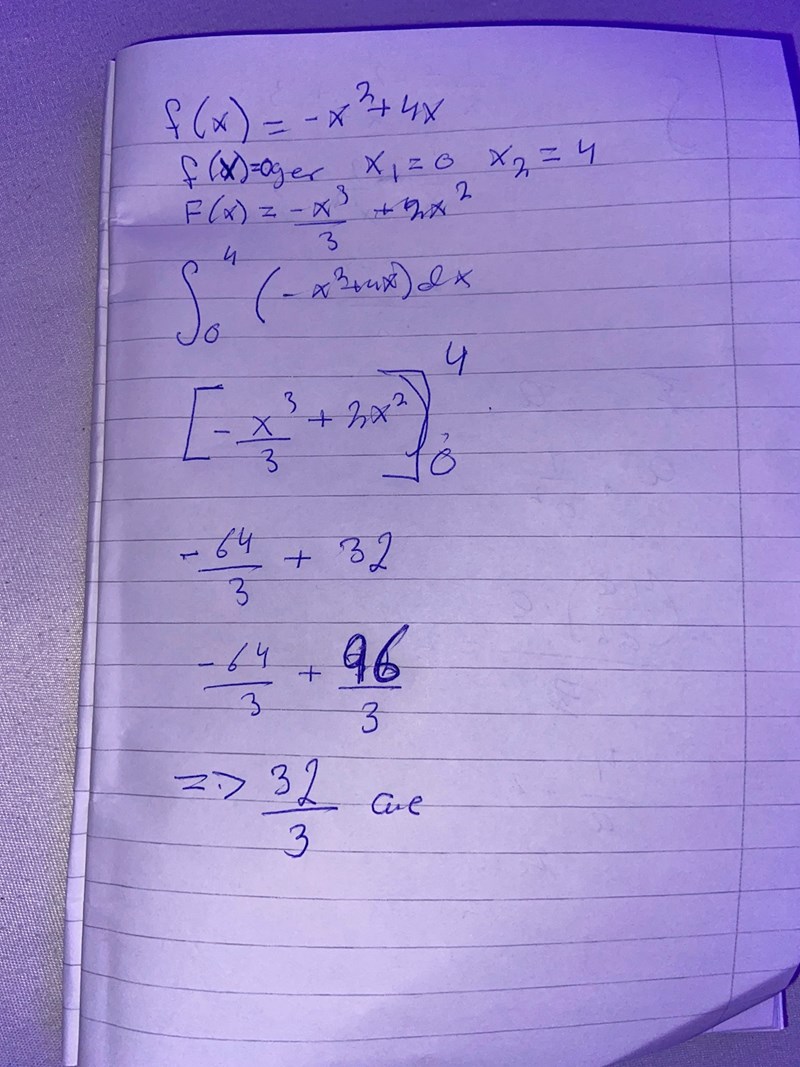 f(x) = -x² + 4x
f(x)=0 ger x₁ = 0 x₂ = 4
F(x) = -x³/3 + 2x²
∫₀⁴ (-x²+4x) dx
[-x³/3 + 2x²]₀⁴
-64/3 + 32
-64/3 + 96/3
=> 32/3 a.e